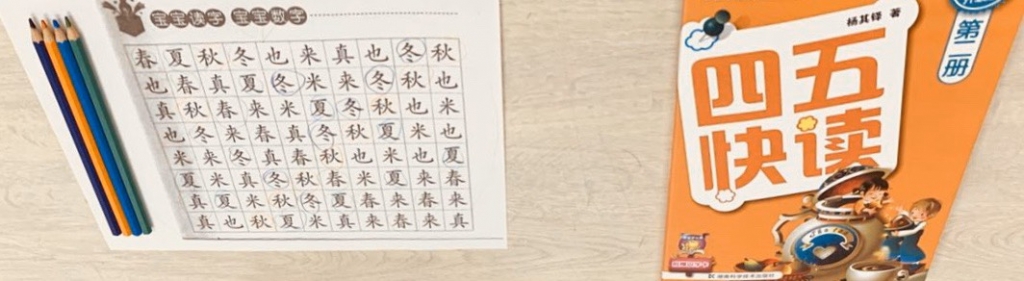 宝宝读字 宝宝数字
春夏秋冬也来真也冬秋
也春真夏冬米来冬秋也
真秋春来米夏冬秋也米
也冬来春真冬秋夏米也
米来冬真春秋也米也夏
夏米真冬秋春米夏来春
真夏米秋冬夏春来春来
真也秋夏米真来春来真
杨其铎 著
第二册
四五
快读